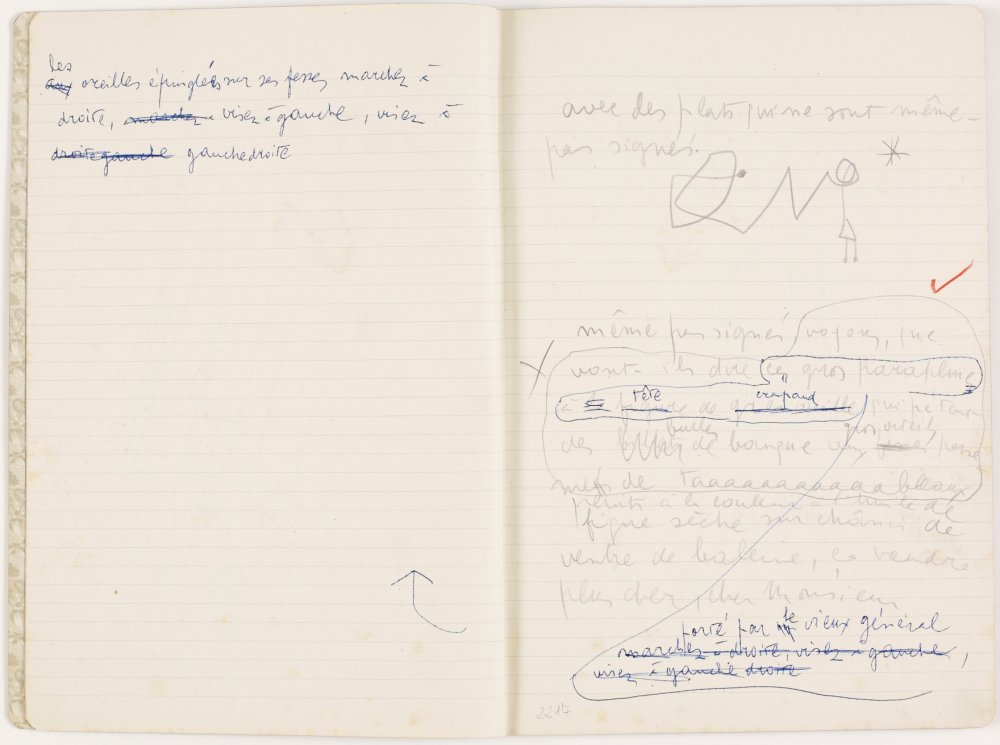 les
aux oreilles épinglées sur ses fesses marchez à
droite, marchez visez à gauche, visez à
droite gauche gauchedroite
avec des plats qui ne sont même
pas signés.
même pas signés voyons, que
vont-ils dire ces gros parapluie
à tête crapaud
figure de qui
bulles gros orteil
des de banque
de taaaaaaaaaaableaux
peints à la couleur à l'huile de
figue sèche sur châssis de
ventre de baleine, ça vendre
plus cher, cher Monsieur
porté par le vieux général
marchez à droite, visez à gauche,
visez à gauche droite
2217